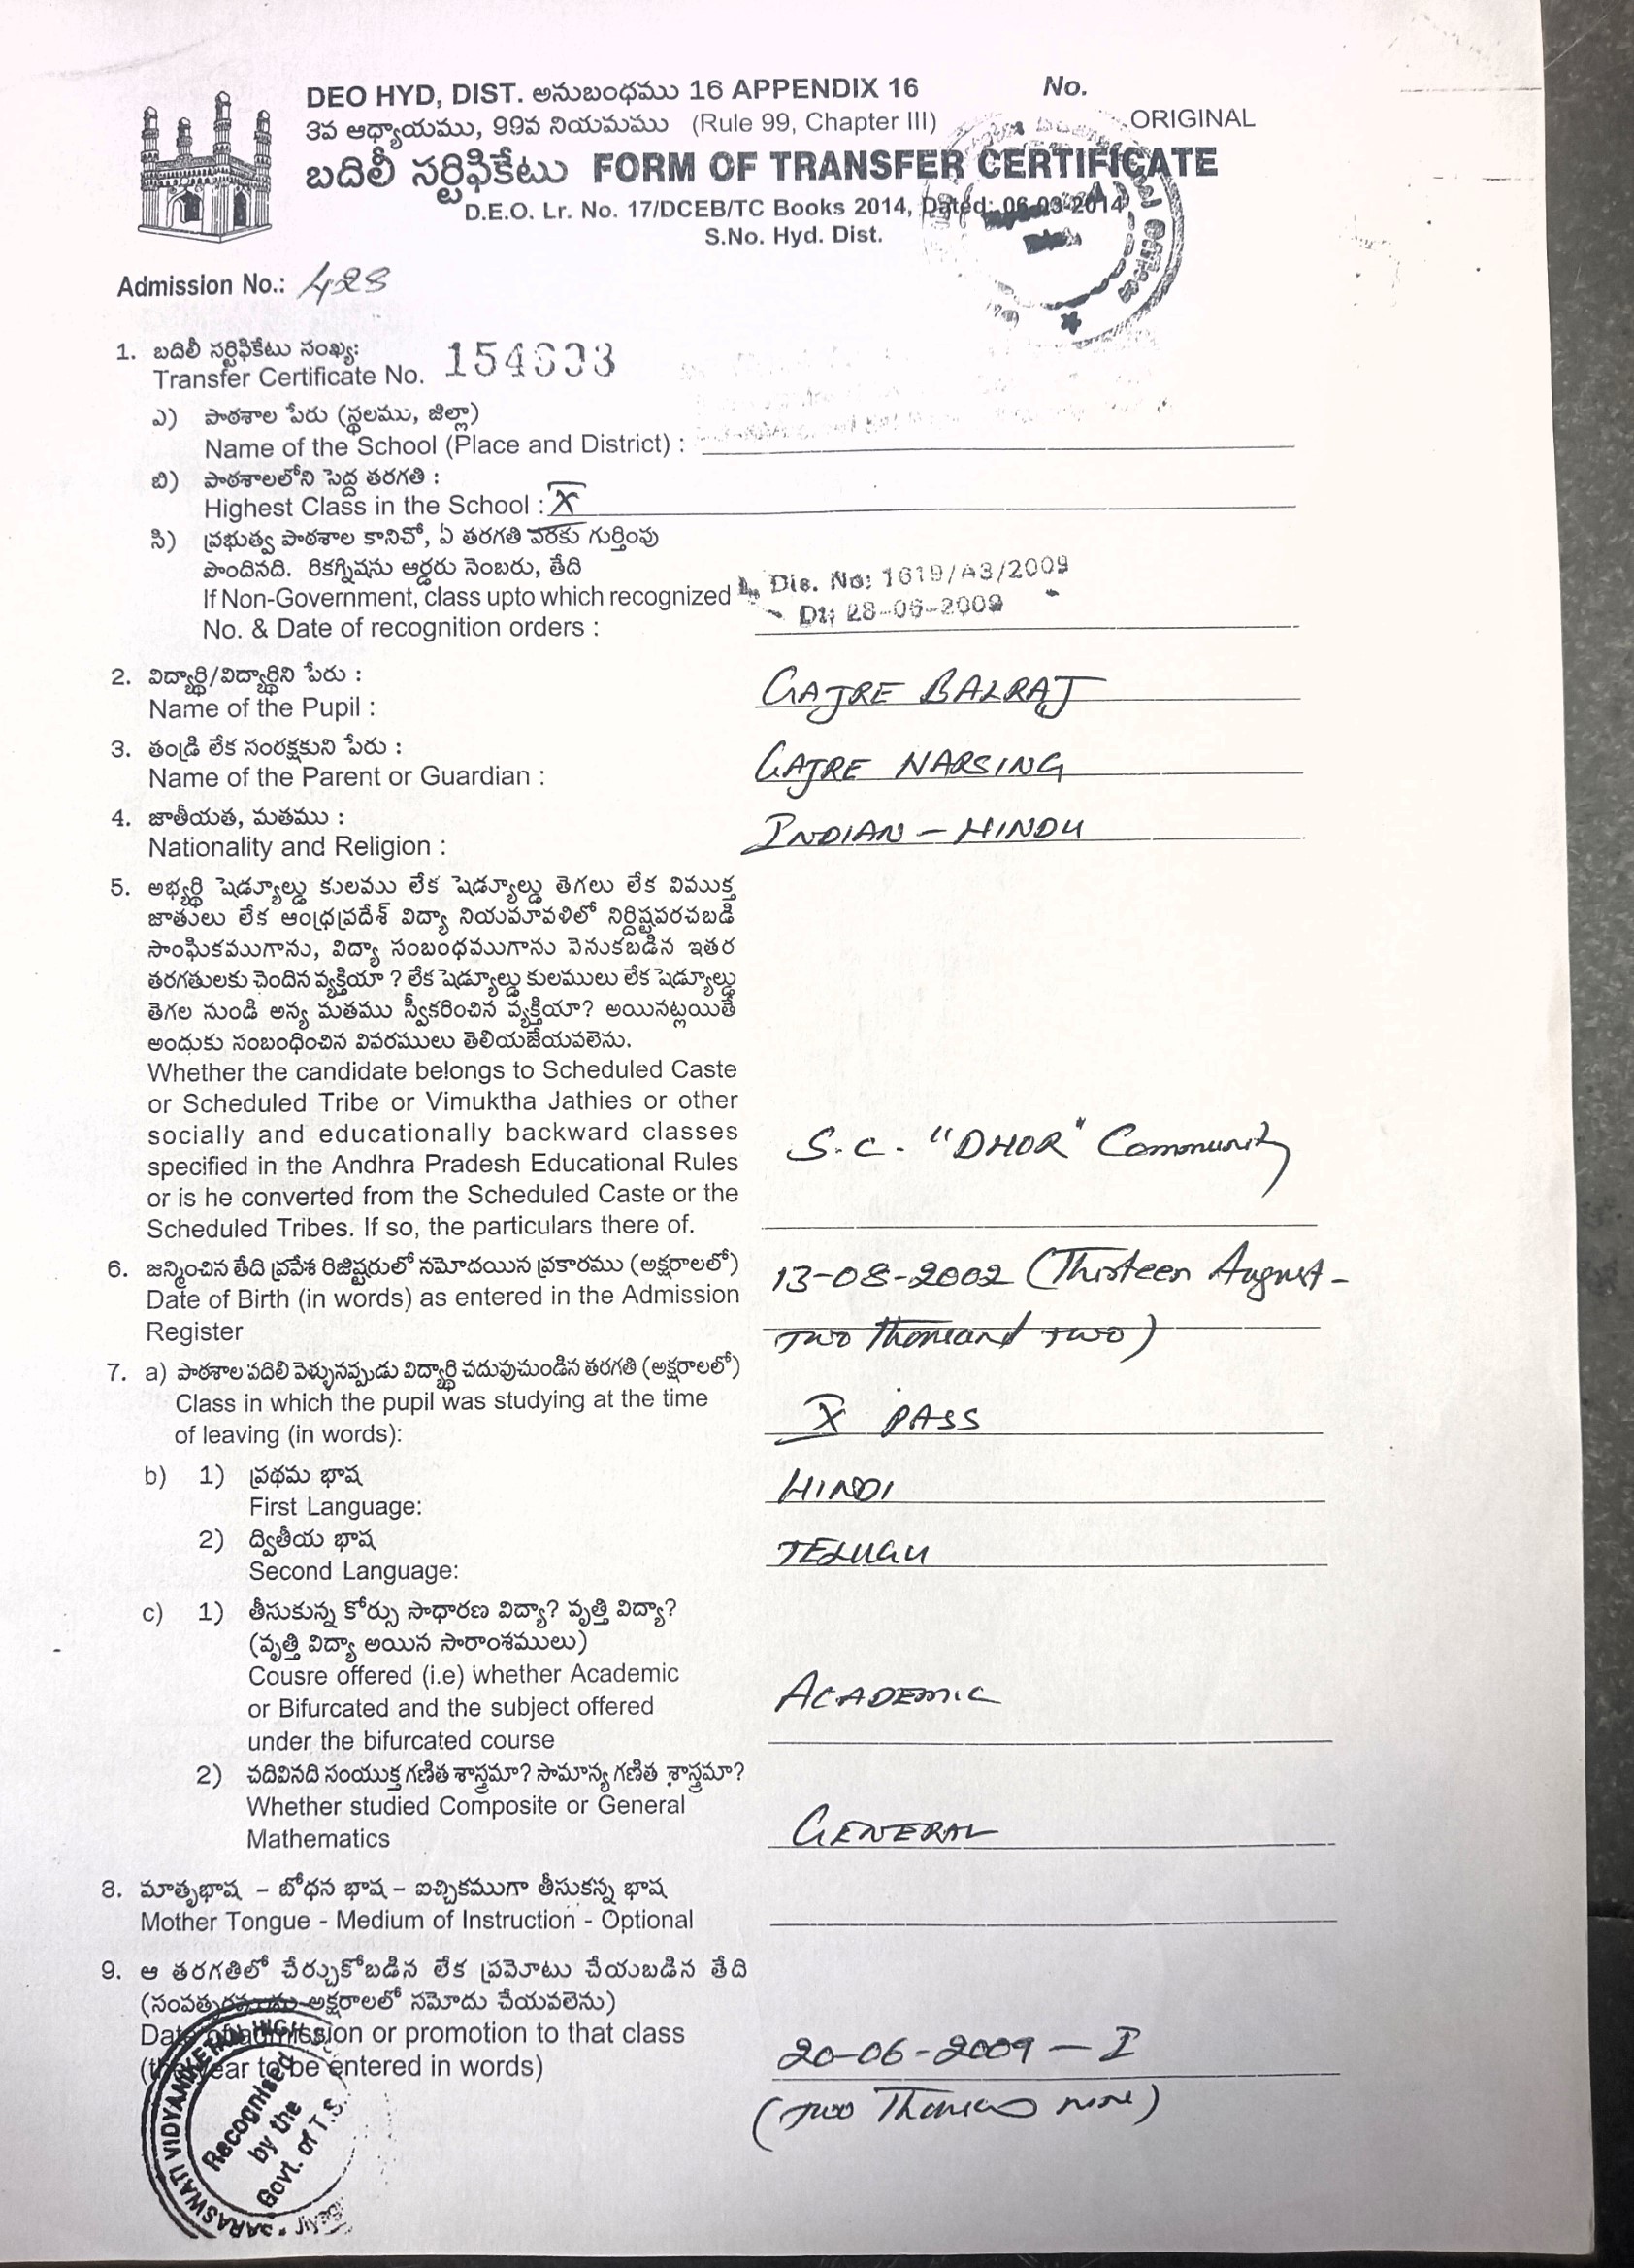 DEO HYD, DIST. అనుబంధము 16 APPENDIX 16 No.
3వ ఆధ్యాయము, 99వ నియమము (Rule 99, Chapter III) ORIGINAL
బదిలీ సర్టిఫికేటు FORM OF TRANSFER CERTIFICATE
D.E.O. Lr. No. 17/DCEB/TC Books 2014, Dated: 06-03-2014
S.No. Hyd. Dist.
Admission No.: 428
1. బదిలీ సర్టిఫికేటు సంఖ్య:
Transfer Certificate No.
ఎ) పాఠశాల పేరు (స్థలము, జిల్లా)
Name of the School (Place and District) :
బి) పాఠశాలలోని పెద్ద తరగతి :
Highest Class in the School : X
సి) ప్రభుత్వ పాఠశాల కానిచో, ఏ తరగతి వరకు గుర్తింపు
పొందినది. రికగ్నిషను ఆర్డరు నెంబరు, తేది
If Non-Government, class upto which recognized Dis. No: 1619/A3/2009
No. & Date of recognition orders : Dt; 28-06-2009
2. విద్యార్థి/విద్యార్థిని పేరు :
Name of the Pupil : GAJRE BALRAJ
3. తండ్రి లేక సంరక్షకుని పేరు :
Name of the Parent or Guardian : GAJRE NARSING
4. జాతీయత, మతము :
Nationality and Religion : INDIAN - HINDU
5. అభ్యర్థి షెడ్యూల్డు కులము లేక షెడ్యూల్డు తెగలు లేక విముక్త
జాతులు లేక ఆంధ్రప్రదేశ్ విద్యా నియమావళిలో నిర్దిష్టపరచబడి
సాంఘికముగాను, విద్యా సంబంధముగాను వెనుకబడిన ఇతర
తరగతులకు చెందిన వ్యక్తియా ? లేక షెడ్యూల్డు కులములు లేక షెడ్యూల్డు
తెగల నుండి అన్య మతము స్వీకరించిన వ్యక్తియా? అయినట్లయితే
అందుకు సంబంధించిన వివరములు తెలియజేయవలెను.
Whether the candidate belongs to Scheduled Caste
or Scheduled Tribe or Vimuktha Jathies or other
socially and educationally backward classes
specified in the Andhra Pradesh Educational Rules
or is he converted from the Scheduled Caste or the
Scheduled Tribes. If so, the particulars there of.
S.C. "DHOR" Community
6. జన్మించిన తేది ప్రవేశ రిజిష్టరులో నమోదయిన ప్రకారము (అక్షరాలలో)
Date of Birth (in words) as entered in the Admission
Register
13-08-2002 (Thirteen August-
Two Thousand Two)
7. a) పాఠశాల వదిలి వెళ్ళునప్పుడు విద్యార్థి చదువుచుండిన తరగతి (అక్షరాలలో)
Class in which the pupil was studying at the time
of leaving (in words): X PASS
b) 1) ప్రథమ భాష
First Language: HINDI
2) ద్వితీయ భాష
Second Language: TELUGU
c) 1) తీసుకున్న కోర్సు సాధారణ విద్యా? వృత్తి విద్యా?
(వృత్తి విద్యా అయిన సారాంశములు)
Cousre offered (i.e) whether Academic
or Bifurcated and the subject offered
under the bifurcated course
ACADEMIC
2) చదివినది సంయుక్త గణిత శాస్త్రమా? సామాన్య గణిత శాస్త్రమా?
Whether studied Composite or General
Mathematics GENERAL
8. మాతృభాష – బోధన భాష – ఐచ్ఛికముగా తీసుకన్న భాష
Mother Tongue - Medium of Instruction - Optional
9. ఆ తరగతిలో చేర్చుకోబడిన లేక ప్రమోటు చేయబడిన తేది
అక్షరాలలో నమోదు చేయవలెను)
Date of admission or promotion to that class
(the year to be entered in words)
20-06-2009 - I
(Two Thousand nine)
SARASWATI VIDYANIKETHAN
Recognised
by the
Govt. of T.S.